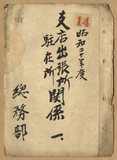 14
昭和二十年度
支店出張所関係 一
駐在所
総務部